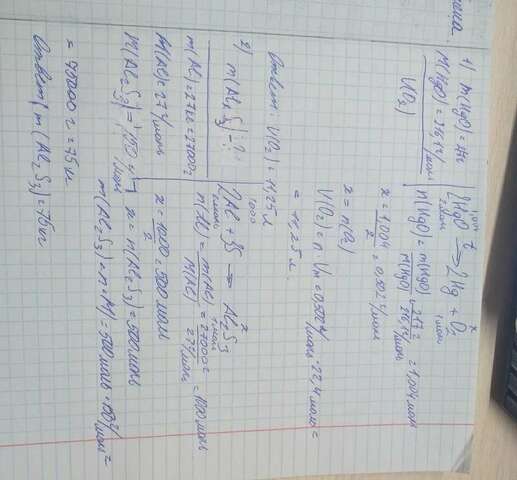 1) m(HgO) = 217г
M(HgO) = 216 г/моль
V(O₂)
1,004 x
2HgO →t 2Hg + O₂
2 моль 1 моль
n(HgO) = m(HgO) / M(HgO) = 217 г / 216 г/моль = 1,004 моль
x = 1,004 / 2 = 0,502 моль
x = n(O₂)
V(O₂) = n · Vm = 0,502 моль · 22,4 моль =
= 11,25 л.
Ответ: V(O₂) = 11,25 л
2) m(Al₂S₃) - ?
m(Al) = 27кг = 27000г
M(Al) = 27 г/моль
M(Al₂S₃) = 150 г/моль
1000 x
2Al + 3S → Al₂S₃
2 моль 1 моль
n(Al) = m(Al) / M(Al) = 27000 г / 27 г/моль = 1000 моль
x = 1000 / 2 = 500 моль
x = n(Al₂S₃) = 500 моль
m(Al₂S₃) = n · M = 500 моль · 150 г/моль =
= 75 кг.
Ответ: m(Al₂S₃) = 75 кг